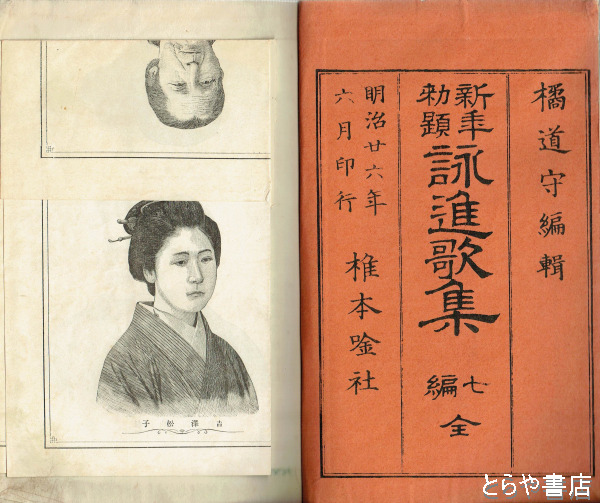 橘道守編輯
新年
勅題
詠進歌集
七編
全
明治廿六年
六月印行
椎本唫社
吉澤松子
とらや書店